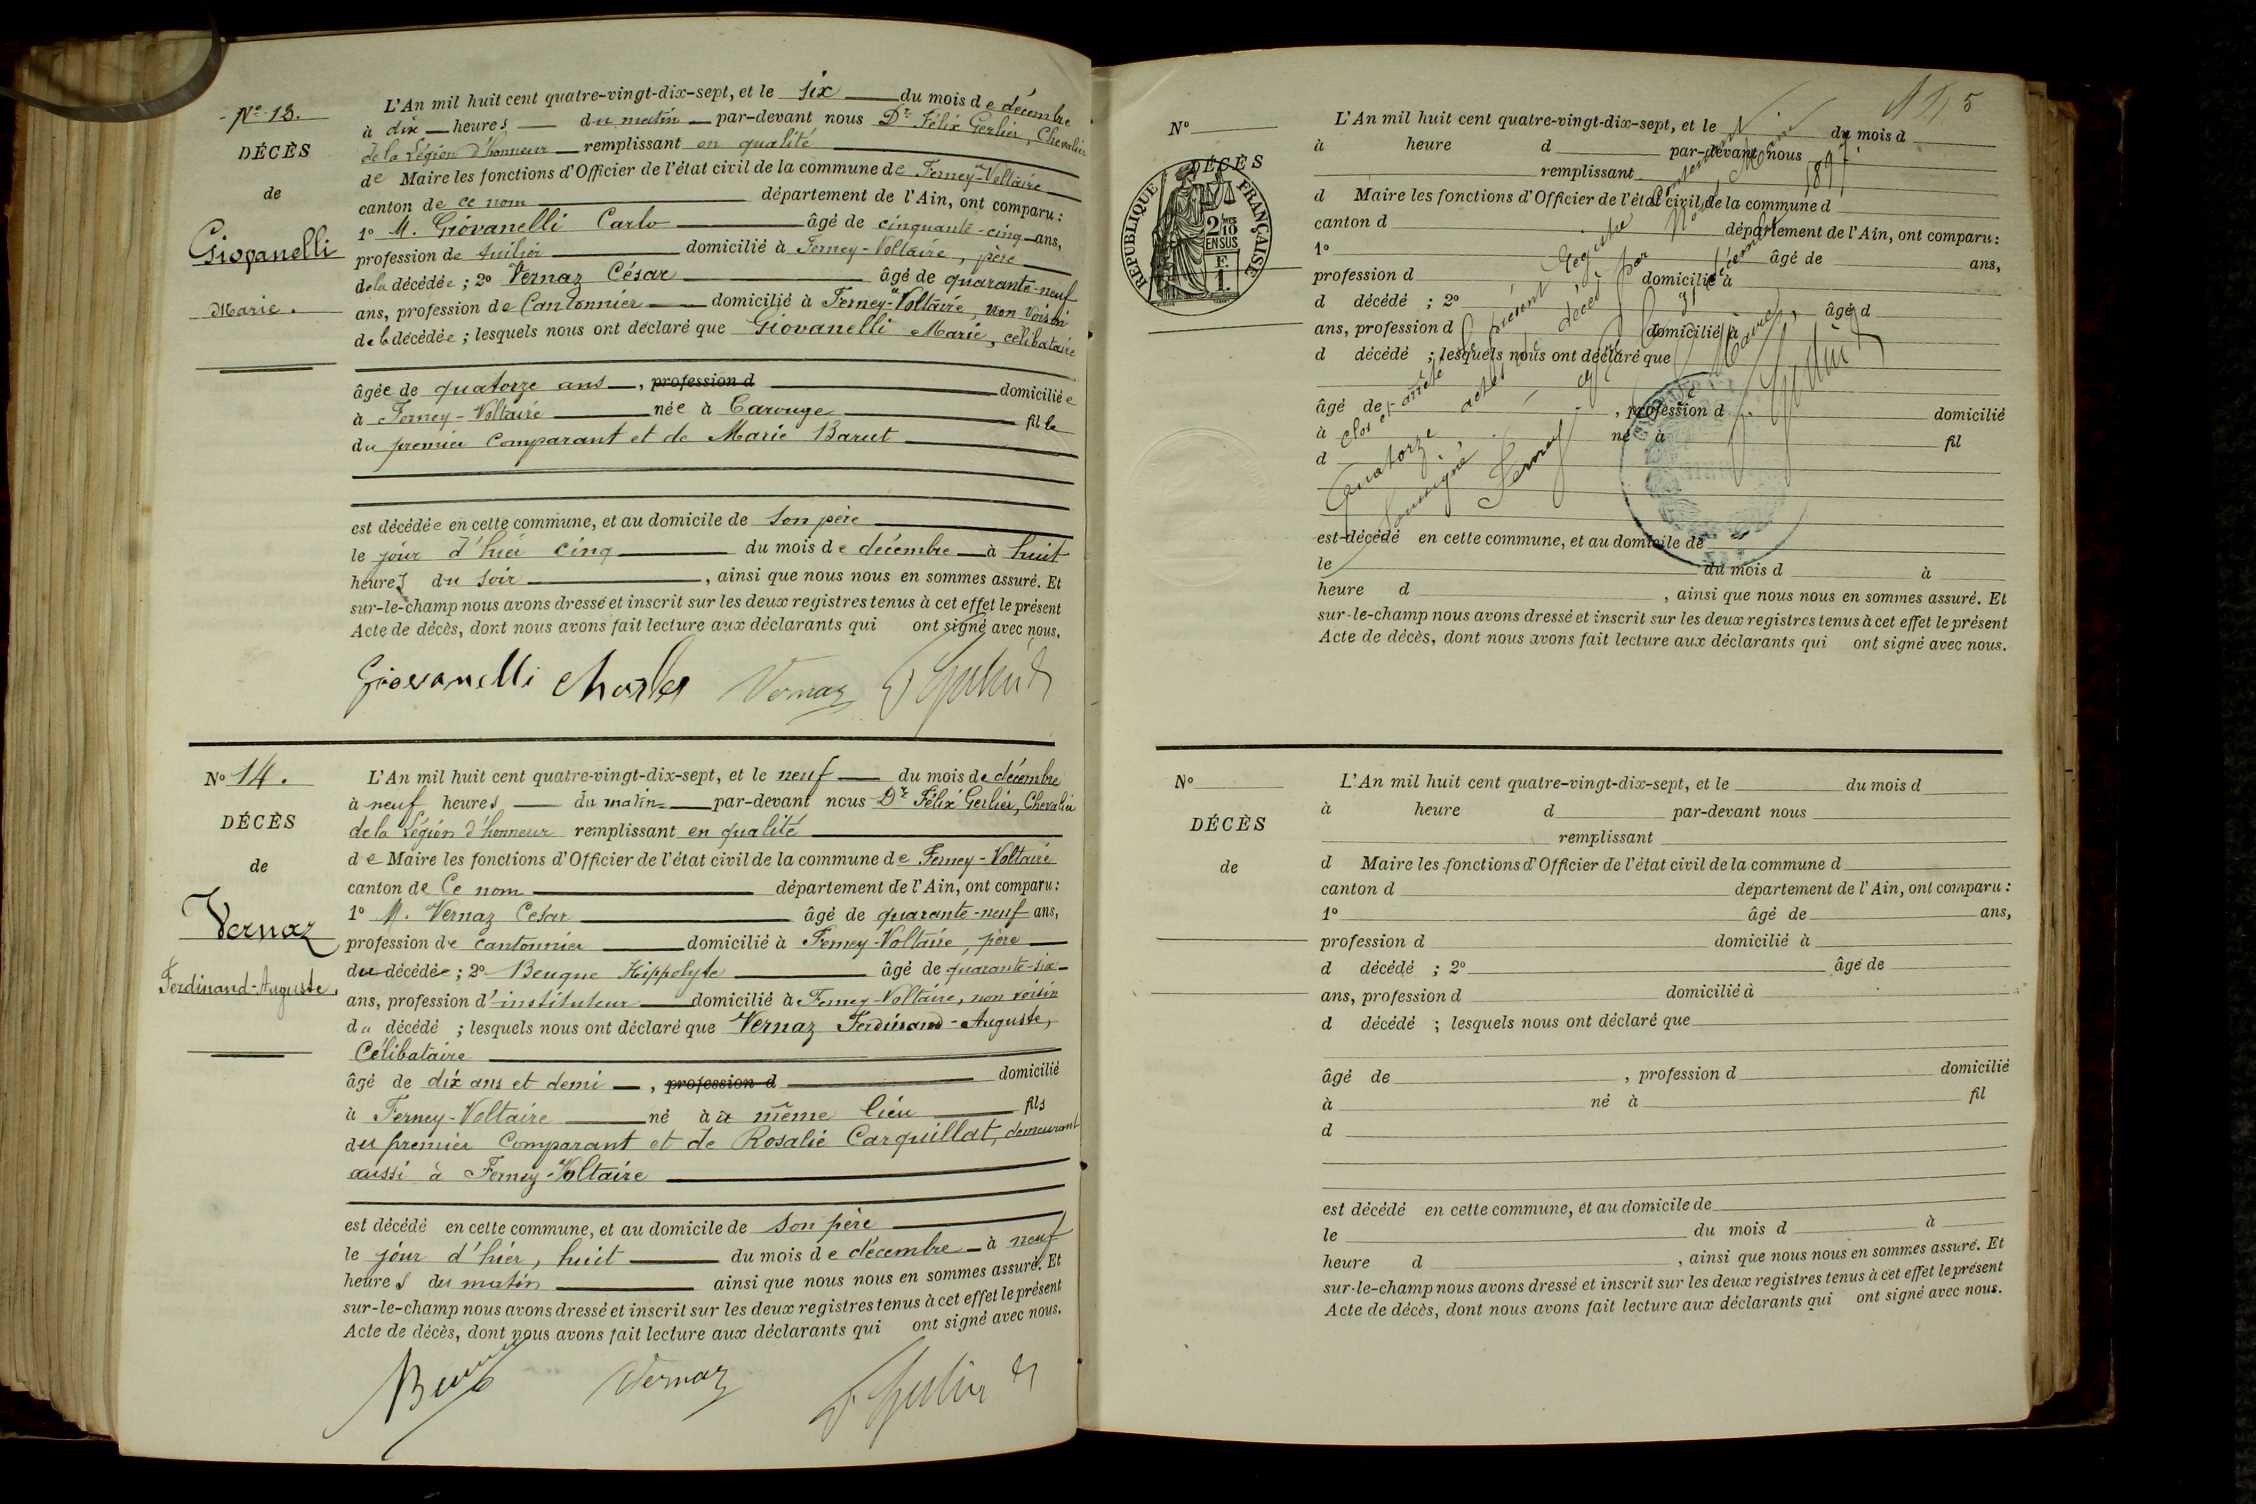 Nº 13.
DÉCÈS
de
Giovanelli
Marie.
L'An mil huit cent quatre-vingt-dix-sept, et le six du mois de décembre
à dix heures du matin par-devant nous Dr Félix Gerlier, Chevalier
de la Légion d'honneur remplissant en qualité
de Maire les fonctions d'Officier de l'état civil de la commune de Ferney-Voltaire
canton de ce nom département de l'Ain, ont comparu :
1º M. Giovanelli Carlo âgé de cinquante-cinq ans,
profession de tuilier domicilié à Ferney-Voltaire, père
de la décédée ; 2º Vernaz César âgé de quarante-neuf
ans, profession de Cantonnier domicilié à Ferney-Voltaire, non voisin
de la décédée ; lesquels nous ont déclaré que Giovanelli Marie, célibataire
âgée de quatorze ans, profession d domiciliée
à Ferney-Voltaire née à Carouge fille
du premier comparant et de Marie Barut
est décédée en cette commune, et au domicile de son père
le jour d'hier cinq du mois de décembre à huit
heures du soir, ainsi que nous nous en sommes assuré. Et
sur-le-champ nous avons dressé et inscrit sur les deux registres tenus à cet effet le présent
Acte de décès, dont nous avons fait lecture aux déclarants qui ont signé avec nous.
Giovanelli Charles Vernaz
Nº 14.
DÉCÈS
de
Vernaz
Ferdinand-Auguste,
L'An mil huit cent quatre-vingt-dix-sept, et le neuf du mois de décembre
à neuf heures du matin par-devant nous Dr Félix Gerlier, Chevalier
de la Légion d'honneur remplissant en qualité
de Maire les fonctions d'Officier de l'état civil de la commune de Ferney-Voltaire
canton de Ce nom département de l'Ain, ont comparu :
1º M. Vernaz César âgé de quarante-neuf ans,
profession de cantonnier domicilié à Ferney-Voltaire, père
du décédée ; 2º Benque Hippolyte âgé de quarante-six
ans, profession d'instituteur domicilié à Ferney-Voltaire, non voisin
du décédé ; lesquels nous ont déclaré que Vernaz Ferdinand-Auguste,
Célibataire
âgé de dix ans et demi, profession d domicilié
à Ferney-Voltaire né à u même lieu fils
du premier Comparant et de Rosalie Carquillat, demeurant
aussi à Ferney-Voltaire
est décédé en cette commune, et au domicile de son père
le jour d'hier, huit du mois de décembre à neuf
heures du matin ainsi que nous nous en sommes assuré. Et
sur-le-champ nous avons dressé et inscrit sur les deux registres tenus à cet effet le présent
Acte de décès, dont nous avons fait lecture aux déclarants qui ont signé avec nous.
Vernaz
5
Nº
DÉCÈS
REPUBLIQUE FRANÇAISE
2/10
EN SUS
F.
1.
L'An mil huit cent quatre-vingt-dix-sept, et le du mois d
à heure d par-devant nous
remplissant
d Maire les fonctions d'Officier de l'état civil de la commune d
canton d département de l'Ain, ont comparu :
1º âgé de ans,
profession d domicilié à
d décédé ; 2º âgé d
ans, profession d domicilié à
d décédé ; lesquels nous ont déclaré que
âgé de, profession d domicilié
à né à fil
d
est décédé en cette commune, et au domicile de
le du mois d à
heure d, ainsi que nous nous en sommes assuré. Et
sur-le-champ nous avons dressé et inscrit sur les deux registres tenus à cet effet le présent
Acte de décès, dont nous avons fait lecture aux déclarants qui ont signé avec nous.
Clos et arrêté le présent Registre contenant
Quatorze actes de décès par Nous, Maire
soussigné
Ferney 31 décembre 1897.
Le Maire,
Nº
DÉCÈS
de
L'An mil huit cent quatre-vingt-dix-sept, et le du mois d
à heure d par-devant nous
remplissant
d Maire les fonctions d'Officier de l'état civil de la commune d
canton d département de l'Ain, ont comparu :
1º âgé de ans,
profession d domicilié à
d décédé ; 2º âgé de
ans, profession d domicilié à
d décédé ; lesquels nous ont déclaré que
âgé de, profession d domicilié
à né à fil
d
est décédé en cette commune, et au domicile de
le du mois d à
heure d, ainsi que nous nous en sommes assuré. Et
sur-le-champ nous avons dressé et inscrit sur les deux registres tenus à cet effet le présent
Acte de décès, dont nous avons fait lecture aux déclarants qui ont signé avec nous.